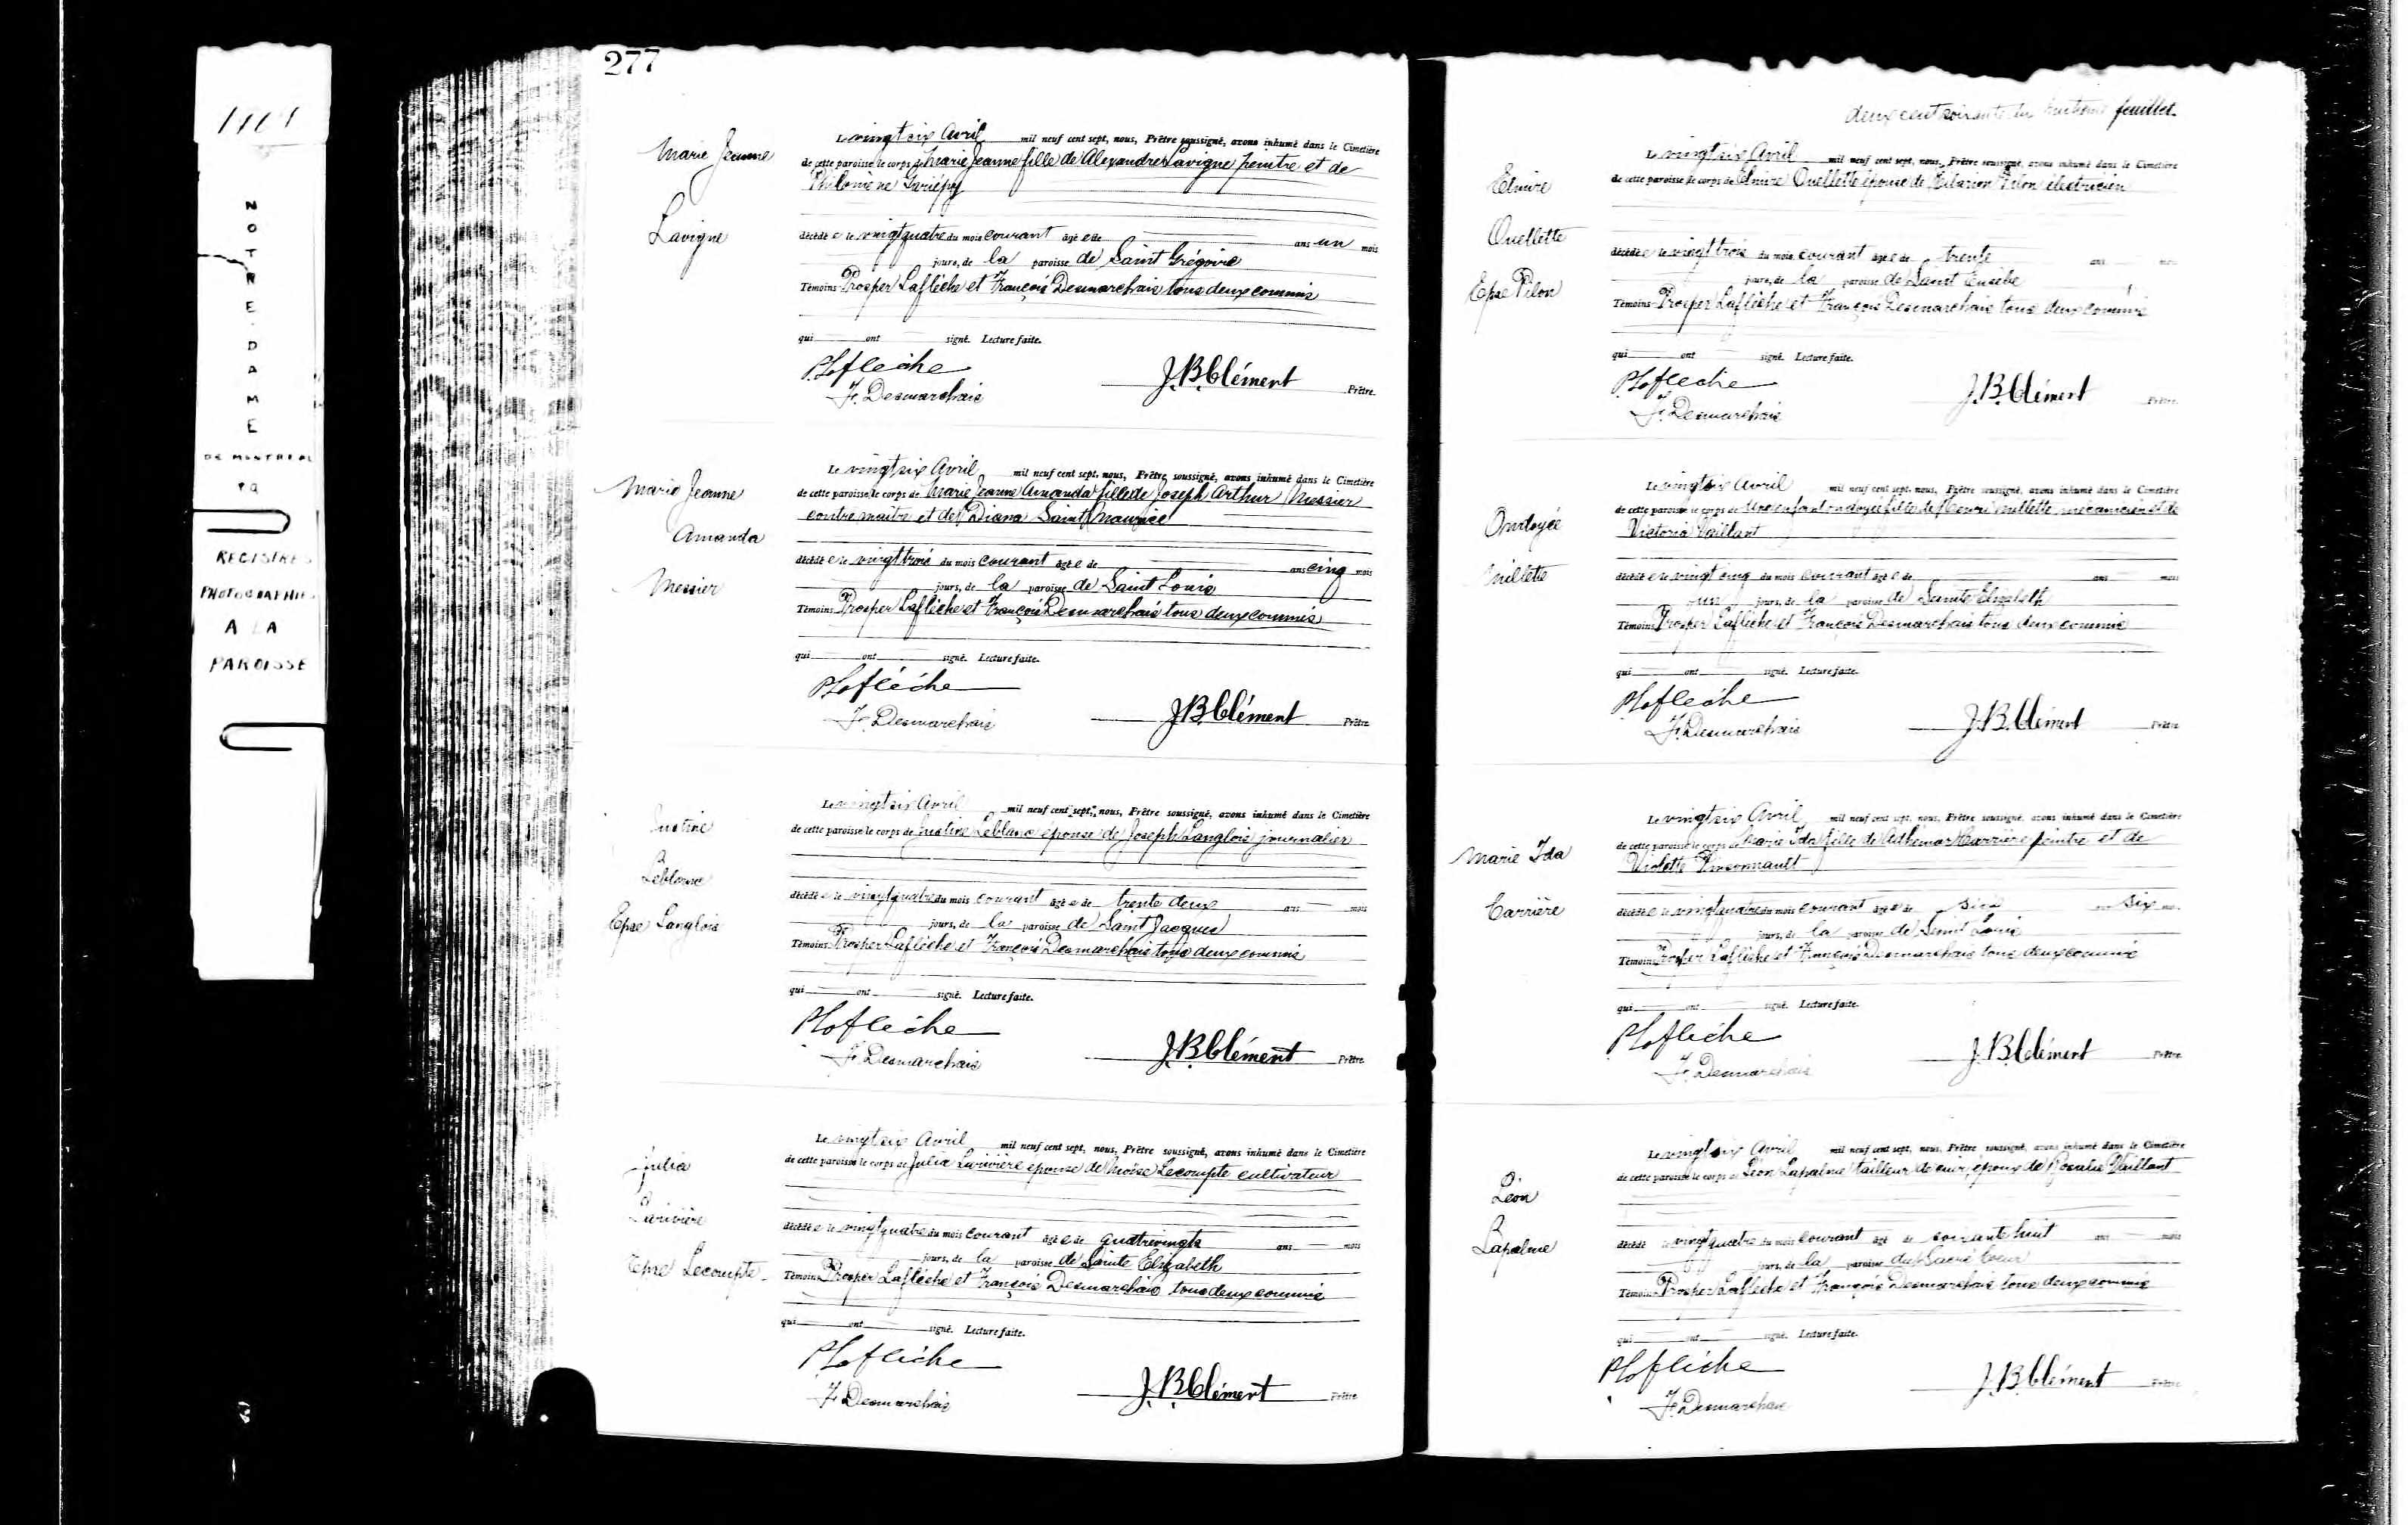 277
NOTRE-DAME
DE MONTREAL
REGISTRES
PHOTOGRAPHIES
A LA
PAROISSE
Marie Jeanne
Lavigne
Le vingtsix Avril mil neuf cent sept, nous, Prêtre soussigné, avons inhumé dans le Cimetière
de cette paroisse le corps de Marie Jeanne fille de Alexandre Lavigne peintre et de
Philomène Gariépy
décédée le vingtquatre du mois courant âgée de ans un mois
jours, de la paroisse de Saint Grégoire
Témoins Prosper Laflèche et François Desmarchais tous deux commis
qui ont signé. Lecture faite.
PLaflèche
F. Desmarchais
J.B. Clément Prêtre.
Marie Jeanne
Amanda
Messier
Le vingtsix Avril mil neuf cent sept, nous, Prêtre soussigné, avons inhumé dans le Cimetière
de cette paroisse le corps de Marie Jeanne Amanda fille de Joseph Arthur Messier
contremaitre et de Diana Saint Maurice
décédée le vingttrois du mois courant âgée de ans cinq mois
jours, de la paroisse de Saint Louis
Témoins Prosper Laflèche et François Desmarchais tous deux commis
qui ont signé. Lecture faite.
PLaflèche
F. Desmarchais
J.B. Clément Prêtre
Justine
Leblanc
Epse Langlois
Le vingtsix Avril mil neuf cent sept, nous, Prêtre soussigné, avons inhumé dans le Cimetière
de cette paroisse le corps de Justine Leblanc épouse de Joseph Langlois journalier
décédée le vingtquatre du mois courant âgée de trente deux ans mois
jours, de la paroisse de Saint Jacques
Témoins Prosper Laflèche et François Desmarchais tous deux commis
qui ont signé. Lecture faite.
PLaflèche
F. Desmarchais
J.B. Clément Prêtre
Julia
Larivière
Epse Lecompte
Le vingtsix Avril mil neuf cent sept, nous, Prêtre soussigné, avons inhumé dans le Cimetière
de cette paroisse le corps de Julia Larivière épouse de Moïse Lecompte cultivateur
décédée le vingtquatre du mois courant âgée de quatrevingts ans mois
jours, de la paroisse de Sainte Elizabeth
Témoins Prosper Laflèche et François Desmarchais tous deux commis
qui ont signé. Lecture faite.
PLaflèche
F. Desmarchais
J.B. Clément Prêtre
deux cent soixante dix huitième feuillet.
Elmire
Ouellette
Epse Pilon
Le vingtsix Avril mil neuf cent sept, nous, Prêtre soussigné, avons inhumé dans le Cimetière
de cette paroisse le corps de Elmire Ouellette épouse de Hilarion Pilon électricien
décédée le vingttrois du mois courant âgée de trente ans mois
jours, de la paroisse de Saint Eusèbe
Témoins Prosper Laflèche et François Desmarchais tous deux commis
qui ont signé. Lecture faite.
PLaflèche
F. Desmarchais
J.B. Clément Prêtre
Ondoyée
Millette
Le vingtsix Avril mil neuf cent sept, nous, Prêtre soussigné, avons inhumé dans le Cimetière
de cette paroisse le corps de Une enfant ondoyée fille de Henri Millette mécanicien et de
Victoria Vaillant
décédée le vingtcinq du mois courant âgée de ans mois
un jours, de la paroisse de Sainte Elizabeth
Témoins Prosper Laflèche et François Desmarchais tous deux commis
qui ont signé. Lecture faite.
PLaflèche
F. Desmarchais
J.B. Clément Prêtre
Marie Ida
Carrière
Le vingtsix Avril mil neuf cent sept, nous, Prêtre soussigné, avons inhumé dans le Cimetière
de cette paroisse le corps de Marie Ida fille de Adhémar Carrière peintre et de
Violette
décédée le vingtquatre du mois courant âgée de six mois
jours, de la paroisse de Saint Louis
Témoins Prosper Laflèche et François Desmarchais tous deux commis
qui ont signé. Lecture faite.
PLaflèche
F. Desmarchais
J.B. Clément Prêtre
Léon
Lapalme
Le vingtsix Avril mil neuf cent sept, nous, Prêtre soussigné, avons inhumé dans le Cimetière
de cette paroisse le corps de Léon Lapalme tailleur de cuir, époux de Rosalie Vaillant
décédé le vingtquatre du mois courant âgé de soixante huit ans mois
jours, de la paroisse du Sacré Coeur
Témoins Prosper Laflèche et François Desmarchais tous deux commis
qui ont signé. Lecture faite.
PLaflèche
F. Desmarchais
J.B. Clément Prêtre